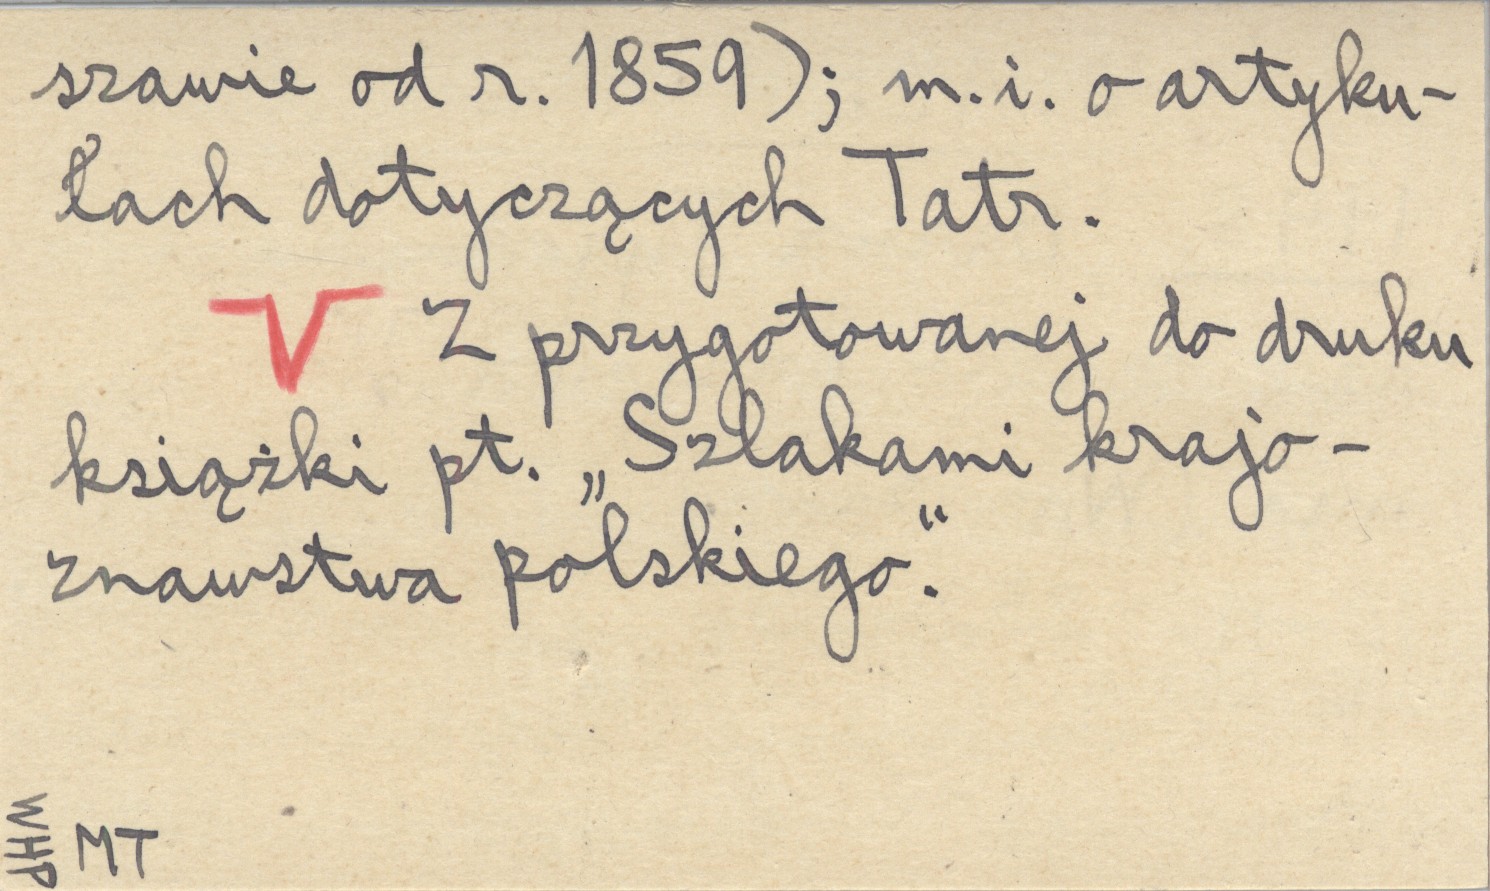 szawie od r. 1859); m.i. o artyku-
łach dotyczących Tatr.
Z przygotowanej do druku
książki pt. „Szlakami krajo-
znawstwa polskiego.“
WHP
MT